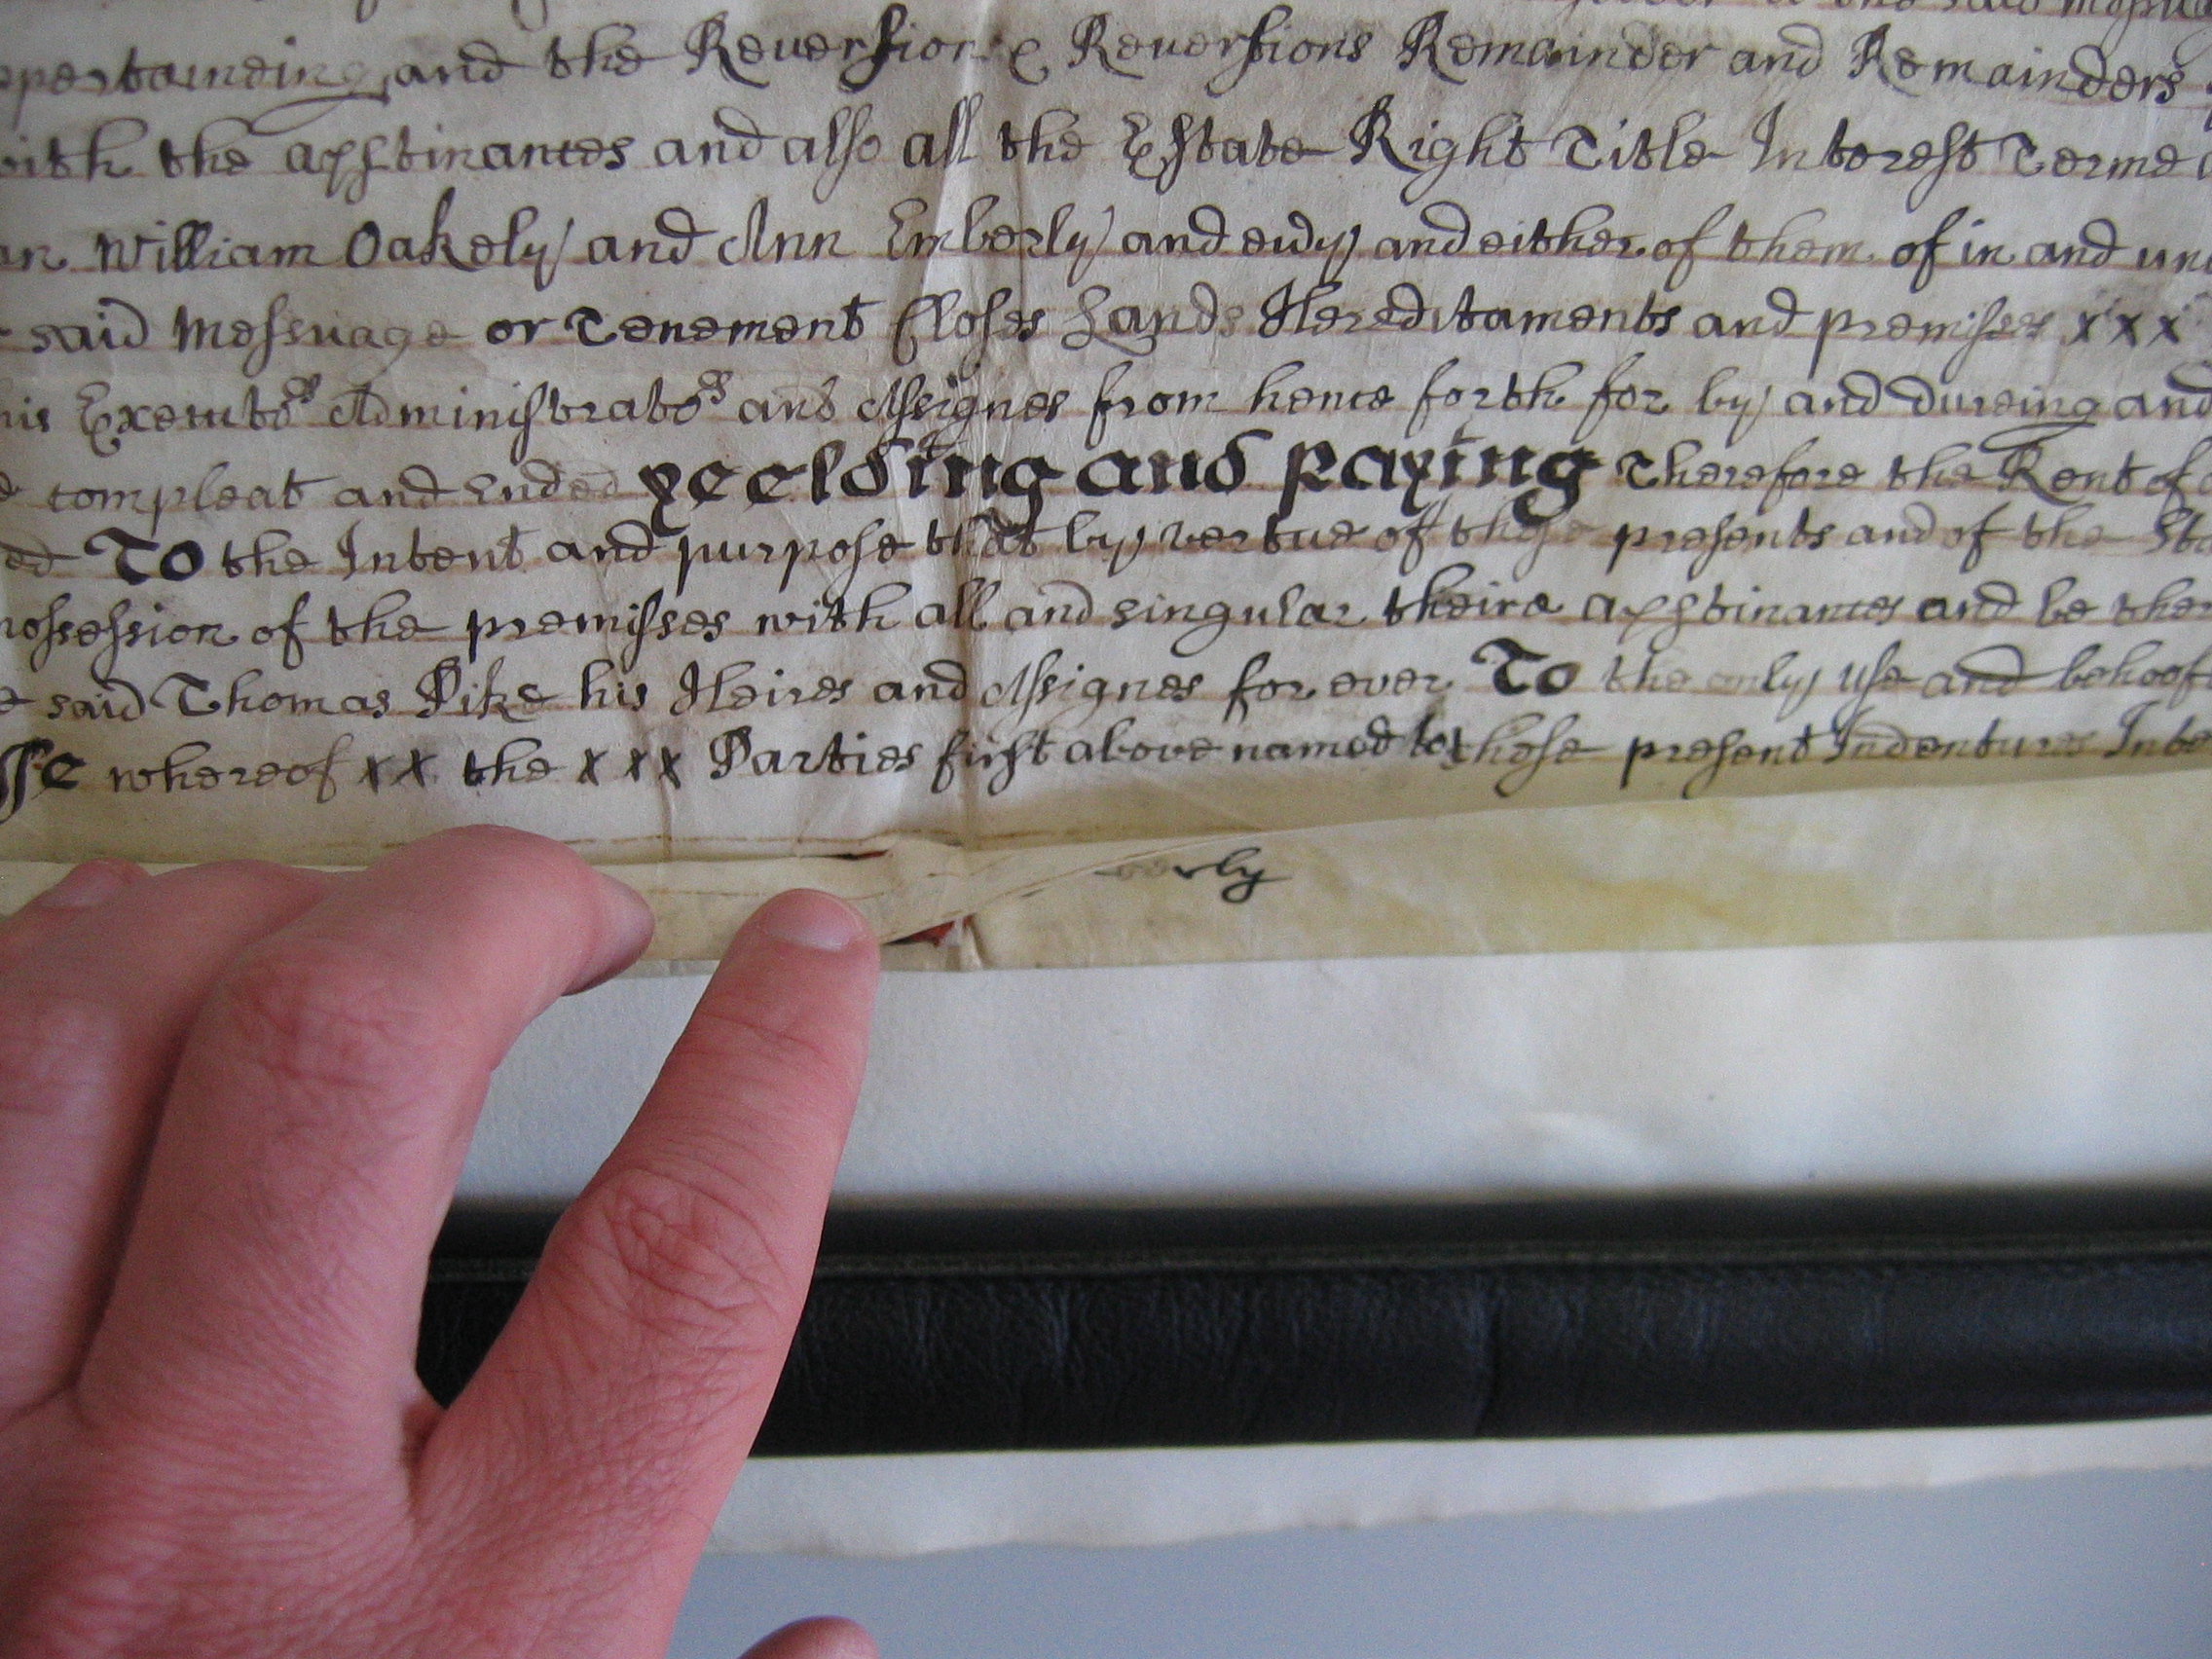 and the Reversion & Reversions Remainder and Remainders
with the appÿtinances and also all the Estate Right Title Interest Terme
William Oakely and Ann Emberly and evÿy and either of them of in and
said Messuage or Tenement Closes Lands Hereditaments and premisses x x x
his Executors Administrators and Assignes from hence forth for by and dureing and
compleat and Ended yeelding and paying Therefore the Rent of
To the Intent and purpose that by vertue of these presents and of the
possession of the premisses with all and singular theire appÿtinances and be
said Thomas Pike his Heires and Assignes for ever To the only use and behoofe
whereof x x the x x x Parties first above named to these present Indentures
rly